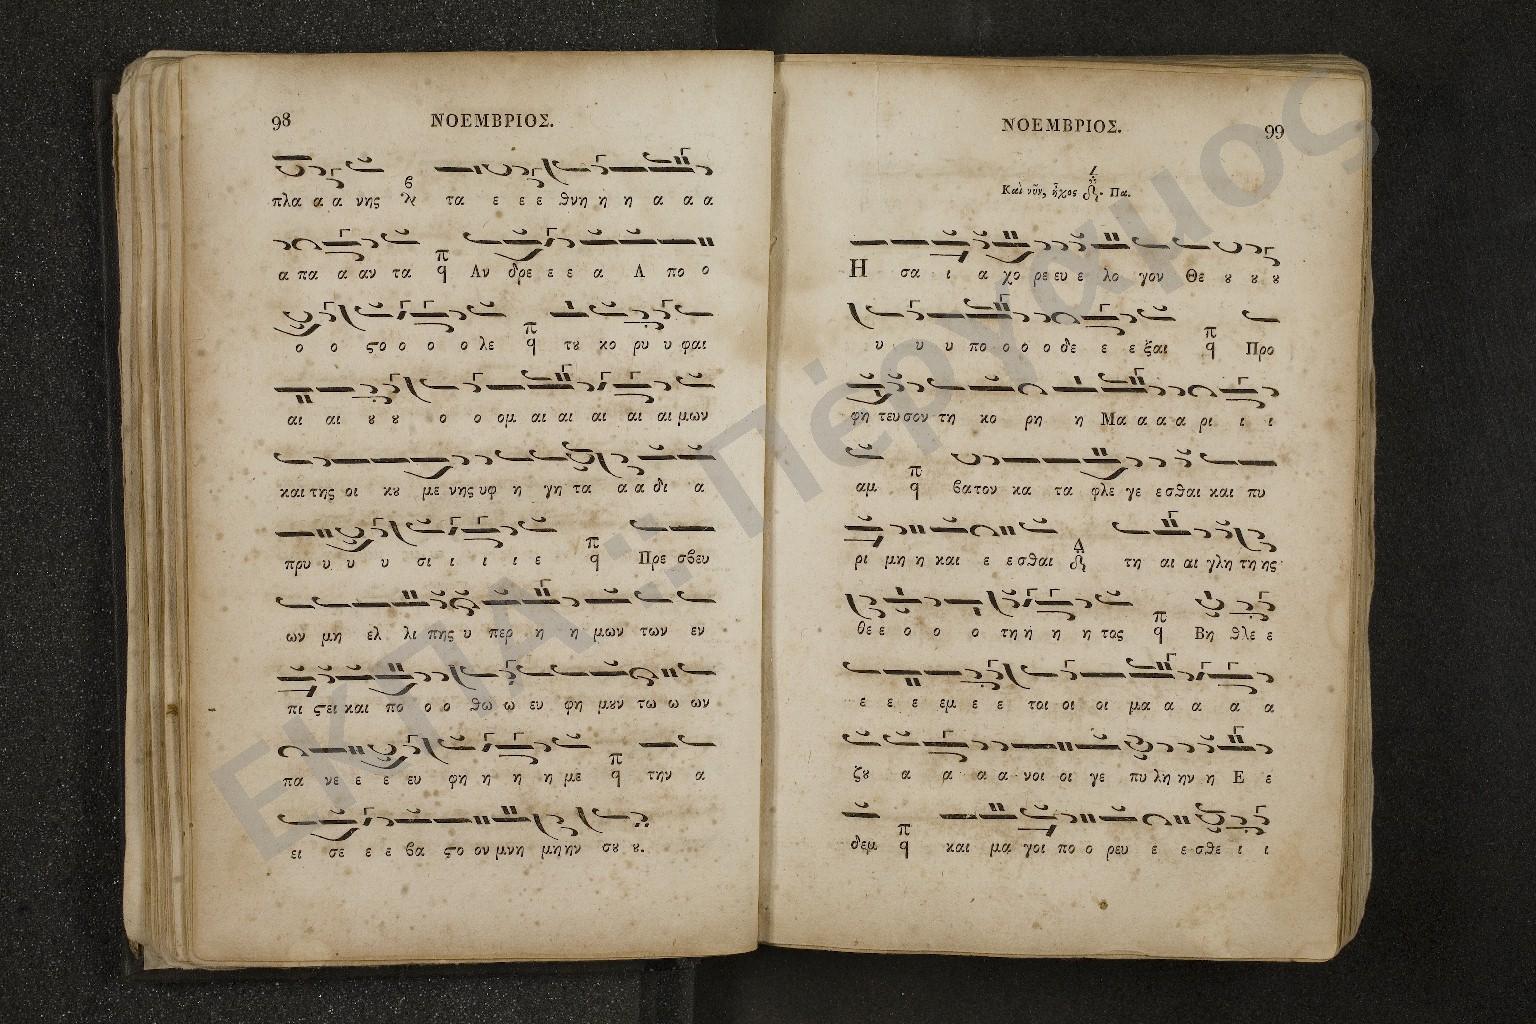 98
ΝΟΕΜΒΡΙΟΣ.
πλα α α νης τα ε ε ε θνη η η α α α
α πα α αν τα π q Αν δρε ε ε α Α πο ο
ο ο ϛο ο ο ο λε π q τȣ κο ρυ υ φαι
αι αι ȣ ȣ ο ο ομ αι αι αι αι αι μων
και της οι κȣ με νης υφ η γη τα α α δι α
πρυ υ υ υ σι ι ι ι ε π q Πρε σβευ
ων μη ελ λι πης υ περ η η μων των εν
πι ϛει και πο ο ο θω ω ευ φη μȣν τω ω ων
πα νε ε ε ευ φη η η η με π q την α
ει σε ε ε βα ϛο ον μνη μη ην σȣ ȣ.
ΝΟΕΜΒΡΙΟΣ.
99
Καὶ νῦν, ἦχος Πα.
Η σα ι α χο ρε ευ ε λο γον Θε ȣ ȣ ȣ
υ υ υ πο ο ο ο δε ε ε ξαι π q Προ
φη τευ σον τη κο ρη η Μα α α α ρι ι ι
αμ π q βατον κα τα φλε γε ε σθαι και πυ
ρι μη η και ε ε σθαι Δ τη αι αι γλη τη ης
θε ε ο ο ο τη ή η η τος π q Βη θλε ε
ε ε ε εμ ε ε τοι οι οι μα α α α α
ζȣ α α α α νοι οι γε πυ λη ην η Ε ε
δεμ π q και μα γοι πο ο ρευ ε ε σθε ι ι
ΕΚΠΑ :: Πέργαμος